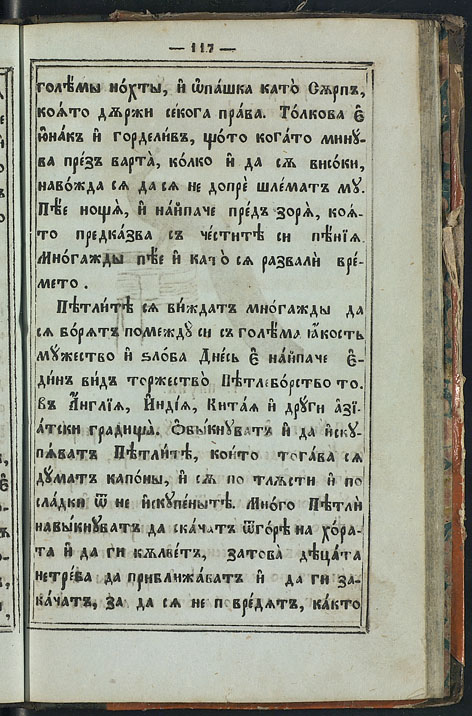 — 117 —
голѣ́мы но́хты, и҆ ѡ҆па́шка като̀ Сѫрпъ,
коѧ́то дѫ́ржи се́кога пра́ва. То́лкова є҆
ѻ҆на́къ и҆ гордели́въ, що́то кога́то мину́-
ва пре́зъ варта̀, ко́лко и҆ да сѫ висо́ки,
наво́жда сѧ да сѧ не допрѐ шле́матъ му.
Пѣ́е нощѧ̀, и҆ на́йпаче пре́дъ зорѧ̀, коѧ́-
то предка́зва съ че́ститѣ си пѣ́нїѧ.
Мно́гажды пѣ́е и҆ като̀ сѧ развалѝ вре́-
мето .
Пѣтли́тѣ сѧ ви́ждатъ мно́гажды да
сѧ бо́рѧтъ помеждꙋ̀ си съ голѣ́ма ꙗ҆́кость
мꙋ́жество и҆ ѕло́ба Дне́сь є҆ на́йпаче є҆-
ди́нъ ви́дъ торжество̀ Пѣтлебо́рство то.
въ А҆́нглїѧ, И҆́ндїѧ, Кита́ѧ и҆ дрꙋ́ги а҆зї-
а́тски гра́дища. Ѻ҆бы́кнꙋватъ и҆ да и҆скꙋ-
пѧ́ватъ Пѣтли́тѣ, кои́то тога́ва сѧ
дꙋ́матъ капо́ны, и҆ сѫ по тлѫ́сти и҆ по
сла́дки ѿ не и҆скꙋпе́нытѣ. Мно́го Пѣтлѝ
навы́кнꙋватъ да ска́чатъ ѿго́рѣ на хо́ра-
та и҆ да гѝ кѫлве́тъ, затова̀ дѣца́та
нетре́ба да приближа́ватъ и҆ да ги за-
ка́чатъ, за да сѧ не повредѧ́тъ, ка́кто